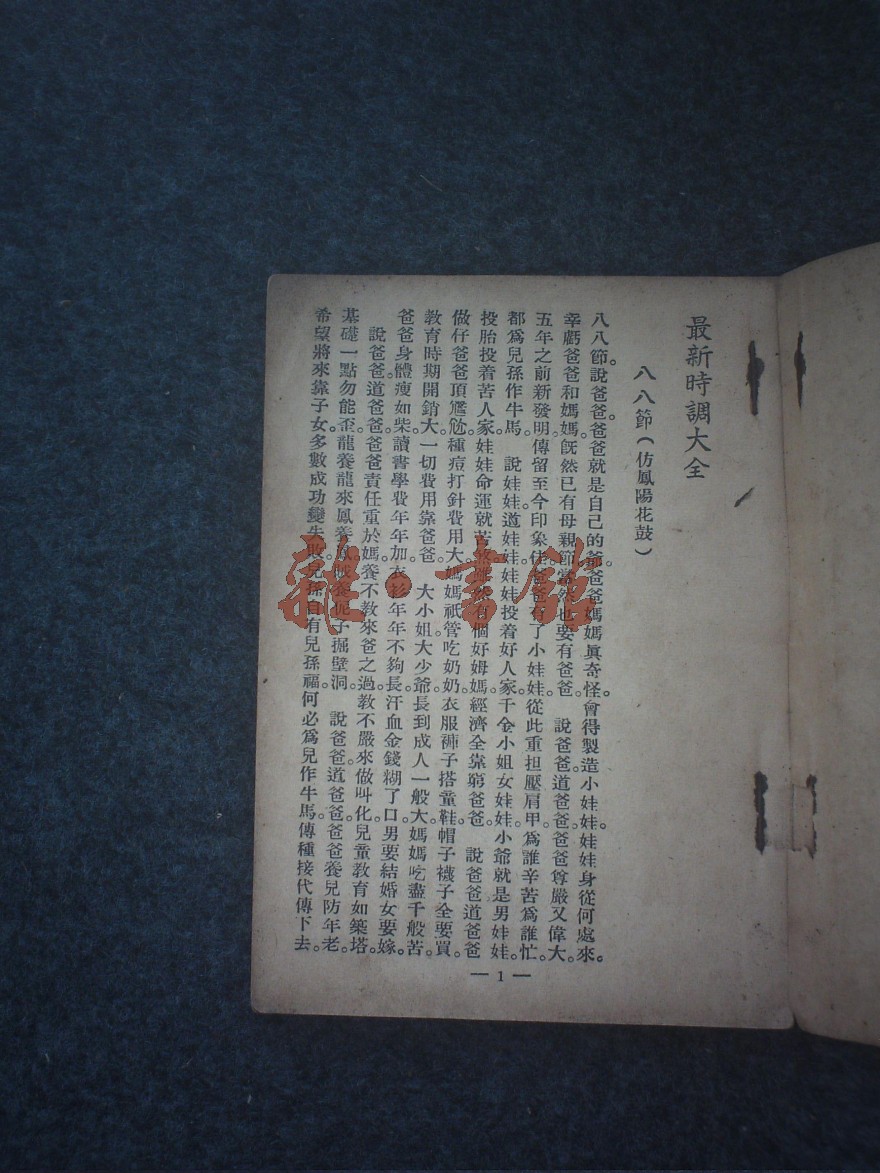 最新時調大全
八八節(仿鳳陽花鼓)
八八節。說爸爸。爸爸就是自己的爺。爸爸媽媽眞奇怪。會得製造小娃娃。娃娃身從何處來。
幸虧爸爸和媽媽。旣然已有母親節。當然也要有爸爸 說爸爸。道爸爸。爸爸尊嚴又偉大。
五年之前新發明。傳留至今印象佳。爸爸有了小娃娃。從此重担壓肩甲。爲誰辛苦爲誰忙。
都爲兒孫作牛馬 說娃娃。道娃娃。娃娃投着好人家。千金小姐女娃娃。小爺就是男娃娃。
投胎投着苦人家。娃娃命運就苦煞。雖然有個好姆媽。經濟全靠窮爸爸 說爸爸。道爸爸
做仔爸爸頂尷尬。種痘打針費用大。媽媽祇管吃奶奶。衣服褲子搭童鞋。帽子襪子全要買。
教育時期開銷大。一切費用靠爸爸 大小姐。大少爺。長到成人一般大。媽媽吃盡千般苦。
爸爸身體瘦如柴。讀書學費年年加。衣衫年年不夠長。汗血金錢糊了口。男要結婚女要嫁。
說爸爸。道爸爸。爸爸責任重於媽。養不教來爸之過。教不嚴來做叫化。兒童教育如築塔。
基礎一點勿能歪。龍養龍來鳳養鳳。賊養伲子掘壁洞。 說爸爸。道爸爸。爸爸養兒防年老。
希望將來靠子女。多數成功變失敗。兒孫自有兒孫福。何必爲兒作牛馬。傳種接代傳下去。
— 1 —
雜·書館